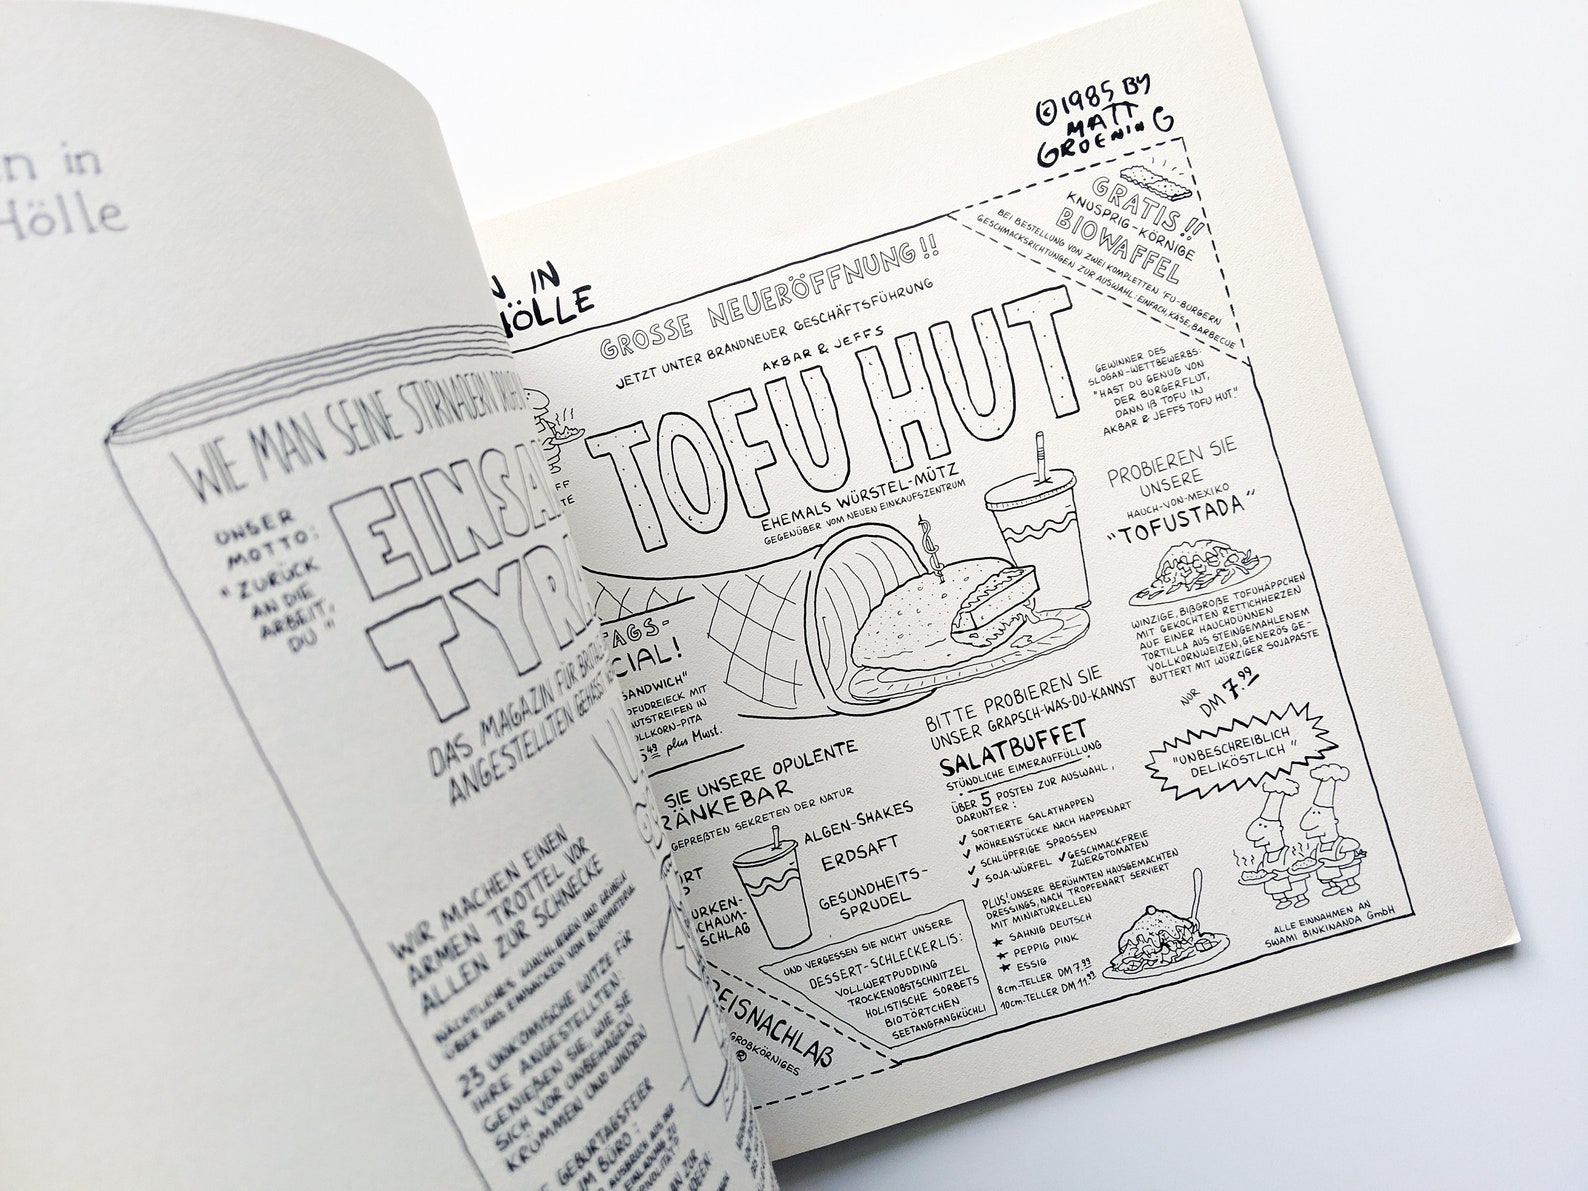 n in
Hölle
WIE MAN SEINE STIRNADERN
UNSER
MOTTO:
"ZURÜCK
AN DIE
ARBEIT,
DU"
EINSA
TYRA
DAS MAGAZIN FÜR
ANGESTELLTEN GEHASST
WIR MACHEN EINEN
ARMEN TROTTEL VOR
ALLEN ZUR SCHNECKE
23 UNKOMISCHE WITZE FÜR
IHRE ANGESTELLTEN:
GENIEßEN SIE, WIE SIE
SICH VOR UNBEHAGEN
KRÜMMEN UND WINDEN
GEBURTSTAGSFEIER
IM BÜRO:
©1985 BY
MATT
GROENING
N IN
HÖLLE
GROSSE NEUERÖFFNUNG!!
JETZT UNTER BRANDNEUER GESCHÄFTSFÜHRUNG
AKBAR & JEFFS
TOFU HUT
EHEMALS WÜRSTEL-MÜTZ
GEGENÜBER VOM NEUEN EINKAUFSZENTRUM
GRATIS!!
KNUSPRIG-KÖRNIGE
BIOWAFFEL
BEI BESTELLUNG VON ZWEI KOMPLETTEN 'FU-BURGERN
GESCHMACKSRICHTUNGEN ZUR AUSWAHL: EINFACH, KÄSE, BARBECUE
GEWINNER DES
SLOGAN-WETTBEWERBS:
"HAST DU GENUG VON
DER BURGERFLUT,
DANN Iß TOFU IN
AKBAR & JEFFS TOFU HUT."
PROBIEREN SIE
UNSERE
HAUCH-VON-MEXIKO
"TOFUSTADA"
WINZIGE, BIßGROßE TOFUHÄPPCHEN
MIT GEKOCHTEN RETTICHHERZEN
AUF EINER HAUCHDÜNNEN
TORTILLA AUS STEINGEMAHLENEM
VOLLKORNWEIZEN, GENERÖS GE-
BUTTERT MIT WÜRZIGER SOJAPASTE
NUR
DM 7.99
"UNBESCHREIBLICH
DELIKÖSTLICH"
ALLE EINNAHMEN AN
SWAMI BINKINANDA GmbH
TAGS-
CIAL!
SANDWICH"
OFUDREIECK MIT
UTSTREIFEN IN
OLLKORN-PITA
5.49 plus Mwst.
SIE UNSERE OPULENTE
RÄNKEBAR
GEPREßTEN SEKRETEN DER NATUR
ALGEN-SHAKES
ERDSAFT
GESUNDHEITS-
SPRUDEL
URKEN-
CHAUM-
SCHLAG
BITTE PROBIEREN SIE
UNSER GRAPSCH-WAS-DU-KANNST
SALATBUFFET
STÜNDLICHE EIMERAUFFÜLLUNG
ÜBER 5 POSTEN ZUR AUSWAHL,
DARUNTER:
✓ SORTIERTE SALATHAPPEN
✓ MÖHRENSTÜCKE NACH HAPPENART
✓ SCHLÜPFRIGE SPROSSEN
✓ SOJA-WÜRFEL ✓ GESCHMACKFREIE
ZWERGTOMATEN
PLUS! UNSERE BERÜHMTEN HAUSGEMACHTEN
DRESSINGS, NACH TROPFENART SERVIERT
MIT MINIATURKELLEN
★ SAHNIG DEUTSCH
★ PEPPIG PINK
★ ESSIG
8cm-TELLER DM 7.99
10cm-TELLER DM 11.99
UND VERGESSEN SIE NICHT UNSERE
DESSERT-SCHLECKERLIS:
VOLLWERTPUDDING
TROCKENOBSTSCHNITZEL
HOLISTISCHE SORBETS
BIOTÖRTCHEN
SEETANGFANGKÜCHLI
REISNACHLAß
GROBKÖRNIGES